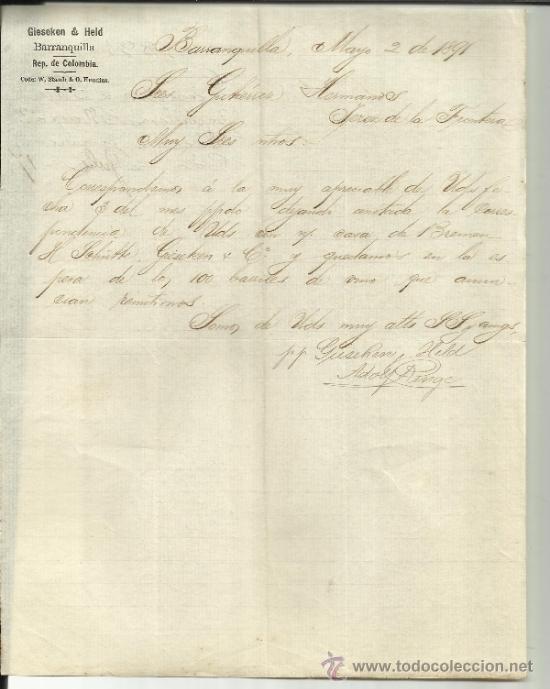 Gieseken & Held
Barranquilla
Rep. de Colombia.
Code: W. Staub & O.
Barranquilla, Mayo 2 de 1891
Sres Gutierrez Hermanos
Jerez de la Frontera
Muy Sres ntros:
Correspondemos á la muy apreciable de Vds fe-
cha 8 del mes ppdo dejando anotada la corres
pondencia de Vds con n/ casa de Bremen
H. Schütte, Gieseken & Co y quedamos en la es
pera de los 100 barriles de vino que anun-
cian remitirnos
Somos de Vds muy atts SS y amgs
pp Gieseken & Held
Adolf Runge
www.todocoleccion.net